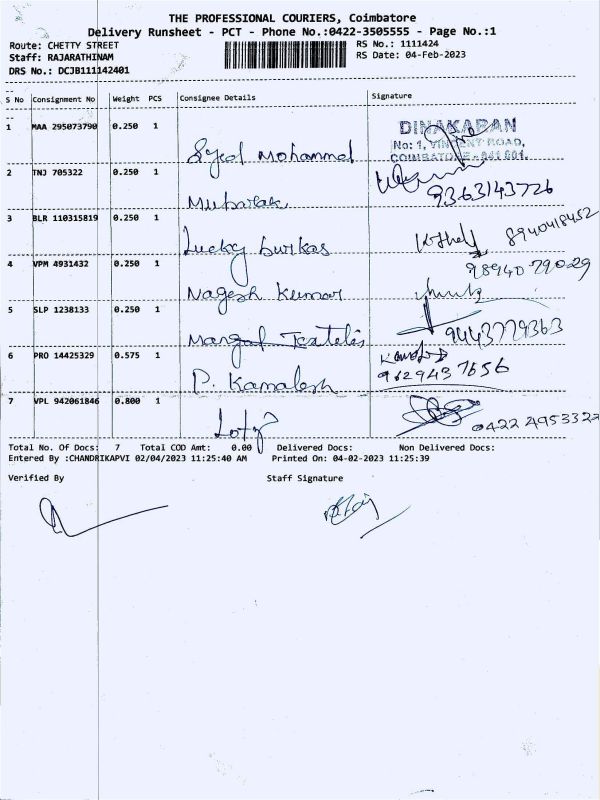 THE PROFESSIONAL COURIERS, Coimbatore
Delivery Runsheet - PCT - Phone No.:0422-3505555 - Page No.:1
Route: CHETTY STREET
Staff: RAJARATHINAM
DRS No.: DCJB111142401
RS No.: 1111424
RS Date: 04-Feb-2023
S No Consignment No Weight PCS Consignee Details Signature
1 MAA 295073790 0.250 1 Syed Mohammed
DINAKARAN
No: 1, VINCENT ROAD,
COIMBATORE - 641 001.
2 TNJ 705322 0.250 1 Mubarak 9363143726
3 BLR 110315819 0.250 1 Lucky burkas 8940418452
4 VPM 4931432 0.250 1 Nagesh Kumar 98940 79029
5 SLP 1238133 0.250 1 9443779363
6 PRO 14425329 0.575 1 P. Kamalesh 9629437656
7 VPL 942061846 0.800 1 0422 4953322
Total No. Of Docs: 7 Total COD Amt: 0.00 Delivered Docs: Non Delivered Docs:
Entered By :CHANDRIKAPVI 02/04/2023 11:25:40 AM Printed On: 04-02-2023 11:25:39
Verified By Staff Signature